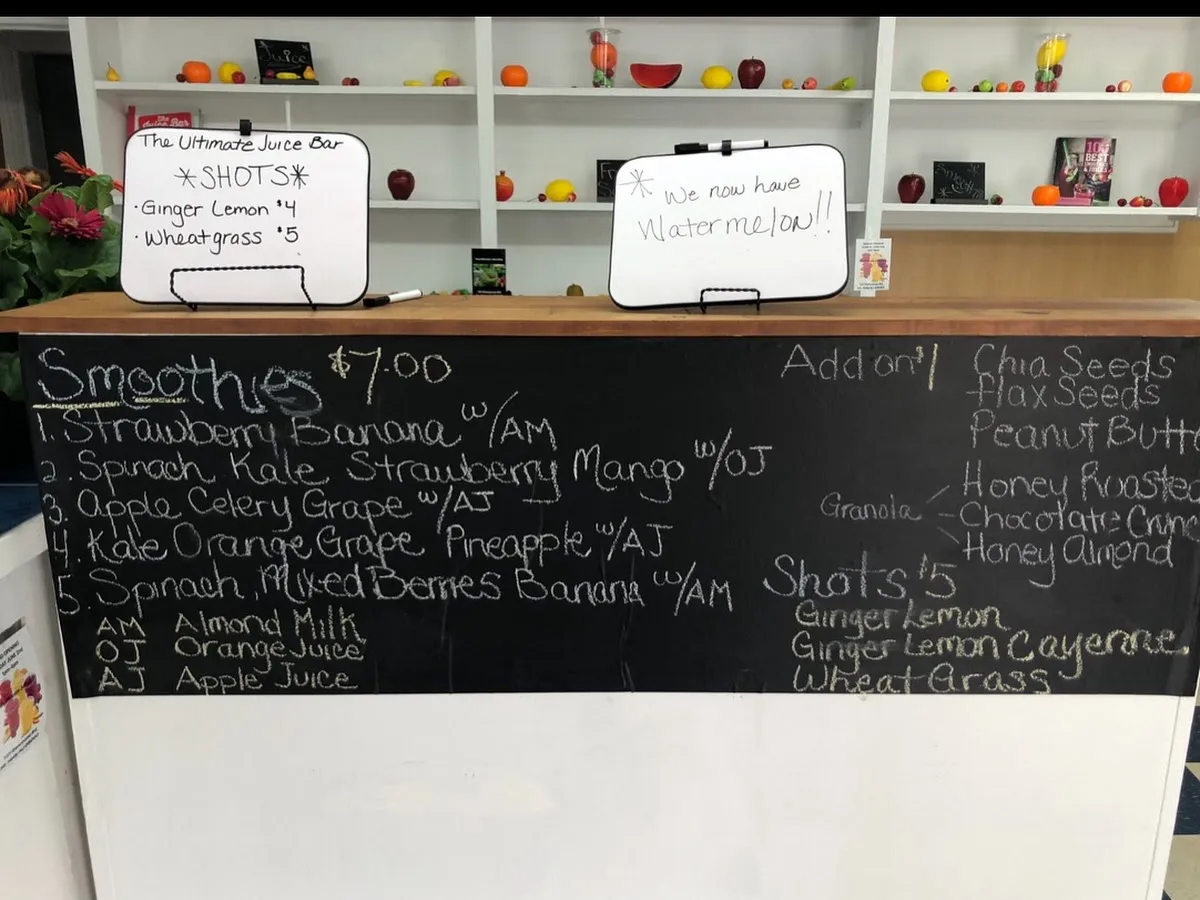 Juice
The Ultimate Juice Bar
*SHOTS*
· Ginger Lemon $4
· Wheatgrass $5
* We now have
Watermelon!!
BEST
Smoothies $7.00
1. Strawberry Banana w/AM
2. Spinach Kale Strawberry Mango w/OJ
3. Apple Celery Grape w/AJ
4. Kale Orange Grape Pineapple w/AJ
5. Spinach, Mixed Berries Banana w/AM
AM Almond Milk
OJ Orange Juice
AJ Apple Juice
Add on $1 Chia Seeds
flax Seeds
Peanut Butt
Honey Roasted
Granola Chocolate Crunc
Honey Almond
Shots $5
Ginger Lemon
Ginger Lemon Cayenne
Wheat Grass